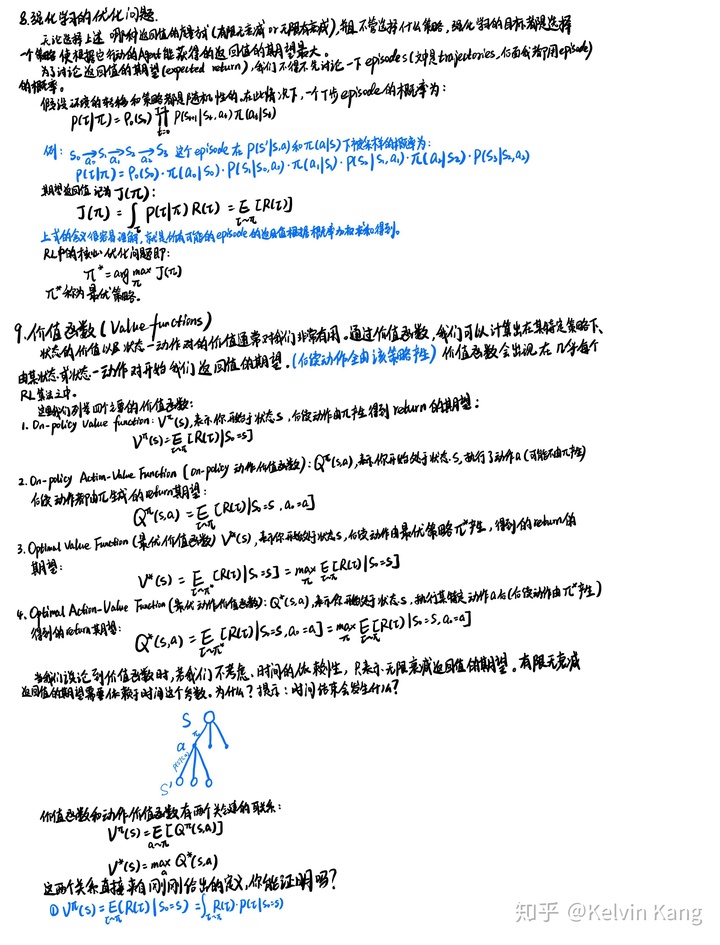 8. 强化学习的优化问题.
无论选择上述哪种返回值的度量方式(有限无衰减 or 无限有衰减),并且不管选择什么策略,强化学习的目标都是选择
一个策略使根据它行动的Agent能获得的返回值的期望最大。
为了讨论返回值的期望(expected return),我们不得不先讨论一下 episodes(或是trajectories,后面会都用episode)
的概率。
假设环境的转移和策略都是随机性的。在此情况下,一个T步episode的概率为:
P(τ|π) = ρ₀(s₀) ∏_{t=0}^{T-1} P(s_{t+1}|s_t, a_t) π(a_t|s_t)
例: s₀ →_{a₀} s₁ →_{a₁} s₂ →_{a₂} s₃ 这个episode在 P(s'|s,a) 和 π(a|s) 下被采样的概率为:
P(τ|π) = ρ₀(s₀)·π(a₀|s₀)·P(s₁|s₀,a₀)·π(a₁|s₁)·P(s₂|s₁,a₁)·π(a₂|s₂)·P(s₃|s₂,a₂)
期望返回值记为 J(π):
J(π) = ∫_τ P(τ|π) R(τ) = E_{τ~π} [R(τ)]
上式的含义很容易理解,就是所有可能的episode的返回值根据概率加权求和得到。
RL中的核心优化问题即:
π* = arg max_π J(π)
π* 称为最优策略。
9. 价值函数(Value functions)
状态的价值以及状态-动作对的价值通常对我们非常有用。通过价值函数,我们可以计算出在某特定策略下、
由某状态或状态-动作对开始我们返回值的期望。(后续动作全由该策略产生) 价值函数会出现在几乎每个
RL算法之中。
这里我们列举四个主要的价值函数:
1. On-policy Value function: V^π(s),表示你开始于状态s,后续动作由π产生得到return的期望:
V^π(s) = E_{τ~π} [R(τ)|s₀=s]
2. On-policy Action-Value Function (on-policy 动作价值函数): Q^π(s,a),表示你开始处于状态s,执行了动作a(可能不由π产生)
后续动作都由π生成的return期望:
Q^π(s,a) = E_{τ~π} [R(τ)|s₀=s, a₀=a]
3. Optimal Value Function (最优价值函数) V*(s),表示你开始处于状态s,后续动作由最优策略π*产生,得到的return的
期望:
V*(s) = E_{τ~π*} [R(τ)|s₀=s] = max_π E_{τ~π} [R(τ)|s₀=s]
4. Optimal Action-Value Function (最优动作价值函数): Q*(s,a),表示你开始处于状态s,执行某特定动作a后(后续动作由π*产生)
得到的return期望:
Q*(s,a) = E_{τ~π*} [R(τ)|s₀=s, a₀=a] = max_π E_{τ~π} [R(τ)|s₀=s, a₀=a]
当我们谈论到价值函数时,若我们不考虑时间的依赖性,只表示无限衰减返回值的期望。有限无衰减
返回值的期望需要依赖于时间这个参数。为什么?提示:时间结束会发生什么?
S
π
a
P(s'|s,a)
S'
价值函数和动作价值函数有两个关键的联系:
V^π(s) = E_{a~π} [Q^π(s,a)]
V*(s) = max_a Q*(s,a)
这两个关系直接来自刚刚给出的定义,你能证明吗?
① V^π(s) = E_{τ~π}(R(τ)|s₀=s) = ∫_τ R(τ)·P(τ|s₀=s)
知乎 @Kelvin Kang